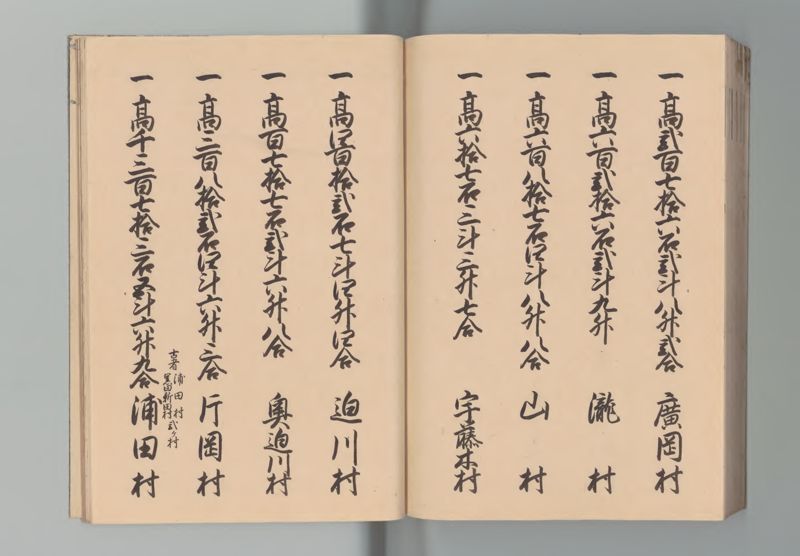 一 高貳百七拾六石貳斗八升貳合 廣岡村
一 高六百貳拾六石貳斗九升 瀧村
一 高六百八拾七石四斗八升八合 山村
一 高六拾七石三斗三升七合 宇藤木村
一 高四百拾貳石七斗四升四合 迫川村
一 高百七拾七石貳斗六升八合 奥迫川村
一 高三百八拾貳石四斗六升三合 片岡村
一 高千三百七拾三石五斗六升九合 浦田村
古者 浦田村 新田村 貳ヶ村